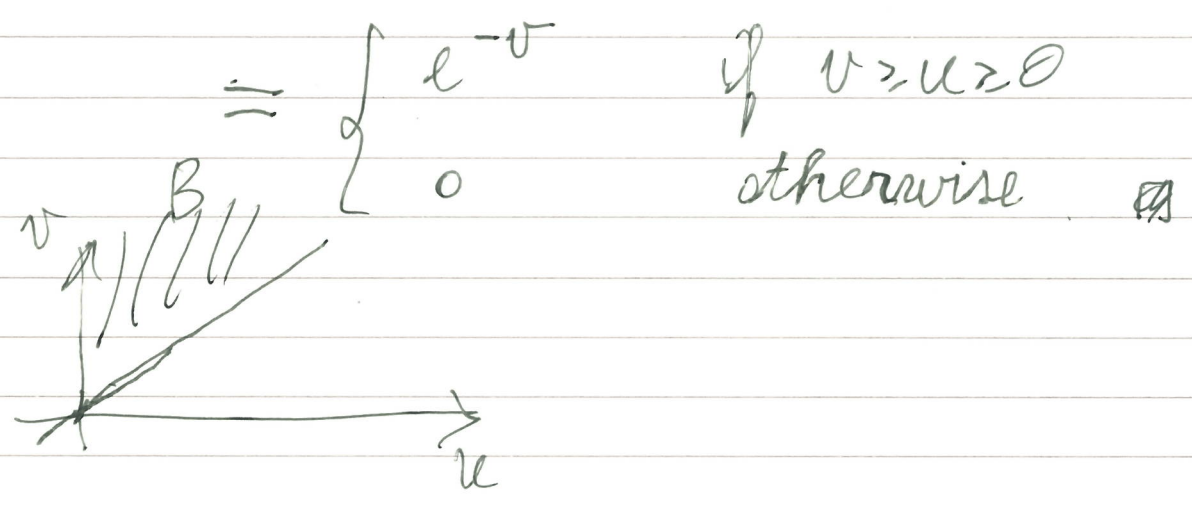 = { e^{-v} if v ≥ u ≥ 0
0 otherwise.
B
v
u